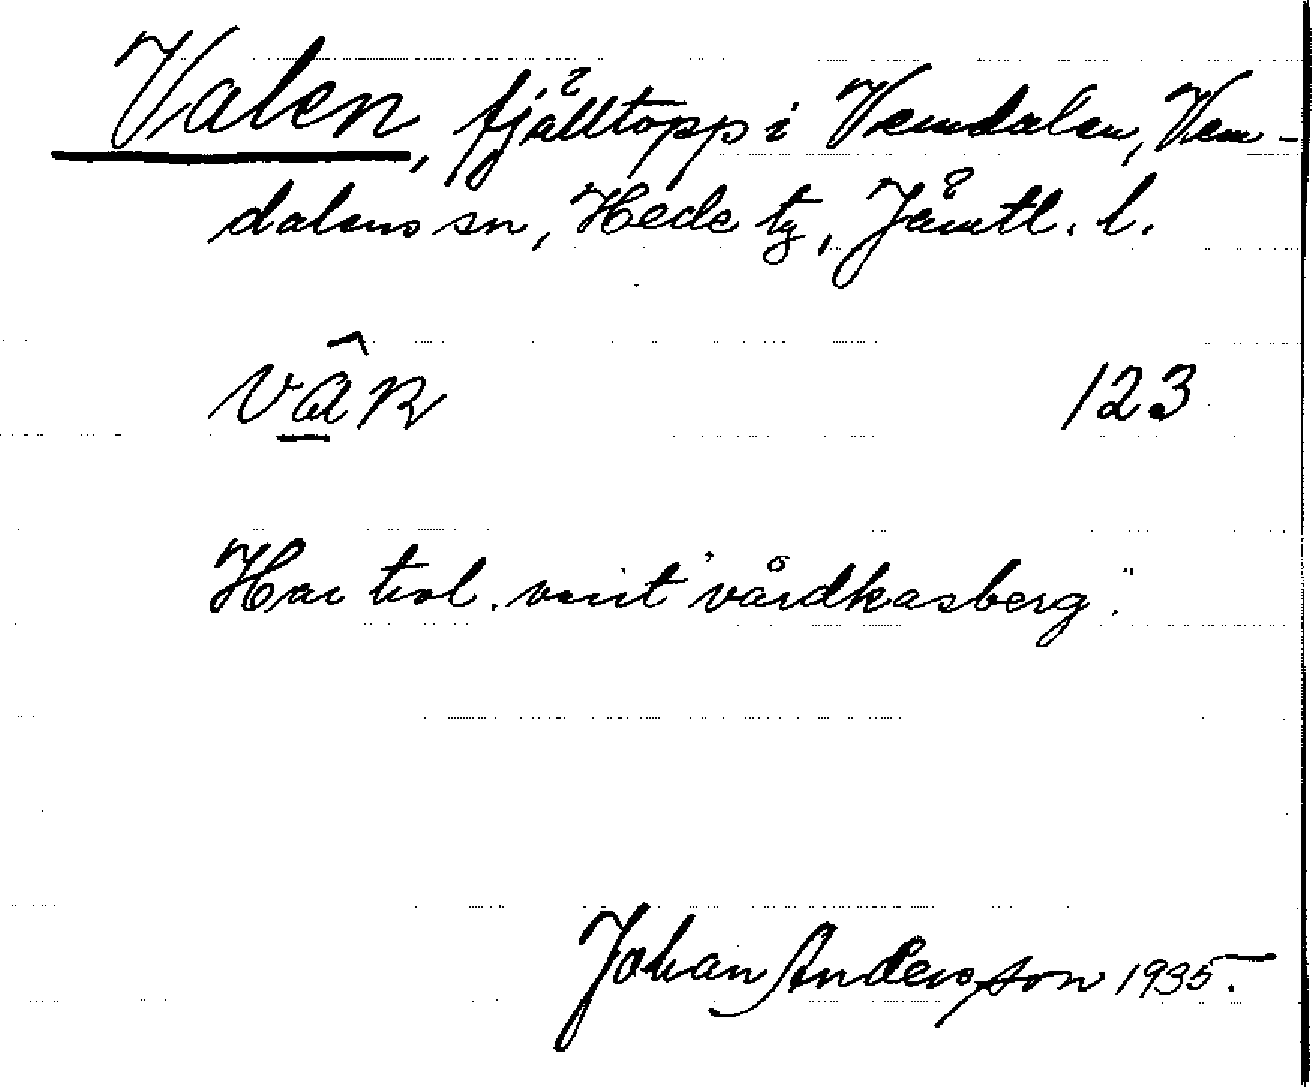 Valen, fjälltopp i Vemdalen, Vem-
dalens sn, Hede tg, Jämtl. l.
vâ̱n 123
Har trol. varit "vårdkasberg".
Johan Andersson 1935.